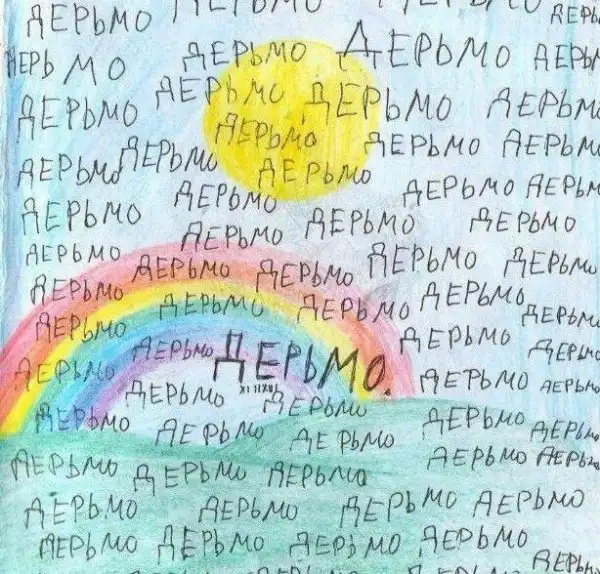 ДЕРЬМО
ДЕРЬМО ДЕРЬМО
ДЕРЬМО ДЕРЬМО ДЕРЬМО
ДЕРЬМО ДЕРЬМО ДЕРЬМО ДЕРЬМО
ДЕРЬМО ДЕРЬМО ДЕРЬМО
ДЕРЬМО ДЕРЬМО ДЕРЬМО
ДЕРЬМО ДЕРЬМО ДЕРЬМО
ДЕРЬМО ДЕРЬМО ДЕРЬМО ДЕРЬМО
ДЕРЬМО ДЕРЬМО ДЕРЬМО
ДЕРЬМО ДЕРЬМО ДЕРЬМО ДЕРЬМО
ДЕРЬМО ДЕРЬМО ДЕРЬМО
ДЕРЬМО ДЕРЬМО ДЕРЬМО. ДЕРЬМО
ДЕРЬМО ДЕРЬМО ДЕРЬМО ДЕРЬМО
ДЕРЬМО ДЕРЬМО ДЕРЬМО ДЕРЬМО
ДЕРЬМО ДЕРЬМО ДЕРЬМО ДЕРЬМО
ДЕРЬМО ДЕРЬМО ДЕРЬМО ДЕРЬМО
ДЕРЬМО ДЕРЬМО ДЕРЬМО ДЕРЬМО